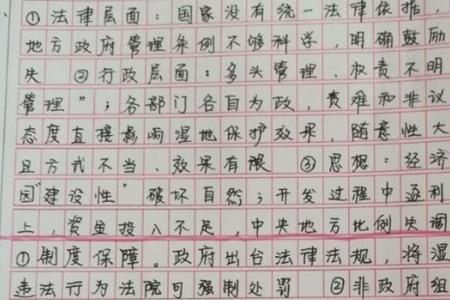 ①法律层面：国家没有统一法律依据，
地方政府管理条例不够科学，明确鼓励
失 ②行政层面：多头管理、权责不明
管理"；各部门各自为政，责难和非议
态度直接影响湿地保护效果，随意性大
且方式不当、效果有限 ③思想：经济
因"建设性"破坏自然；开发过程中逐利
上，资金投入不足，中央地方比例失调
①制度保障。政府出台法律法规，将湿
违法行为法院可强制处罚 ②非政府组